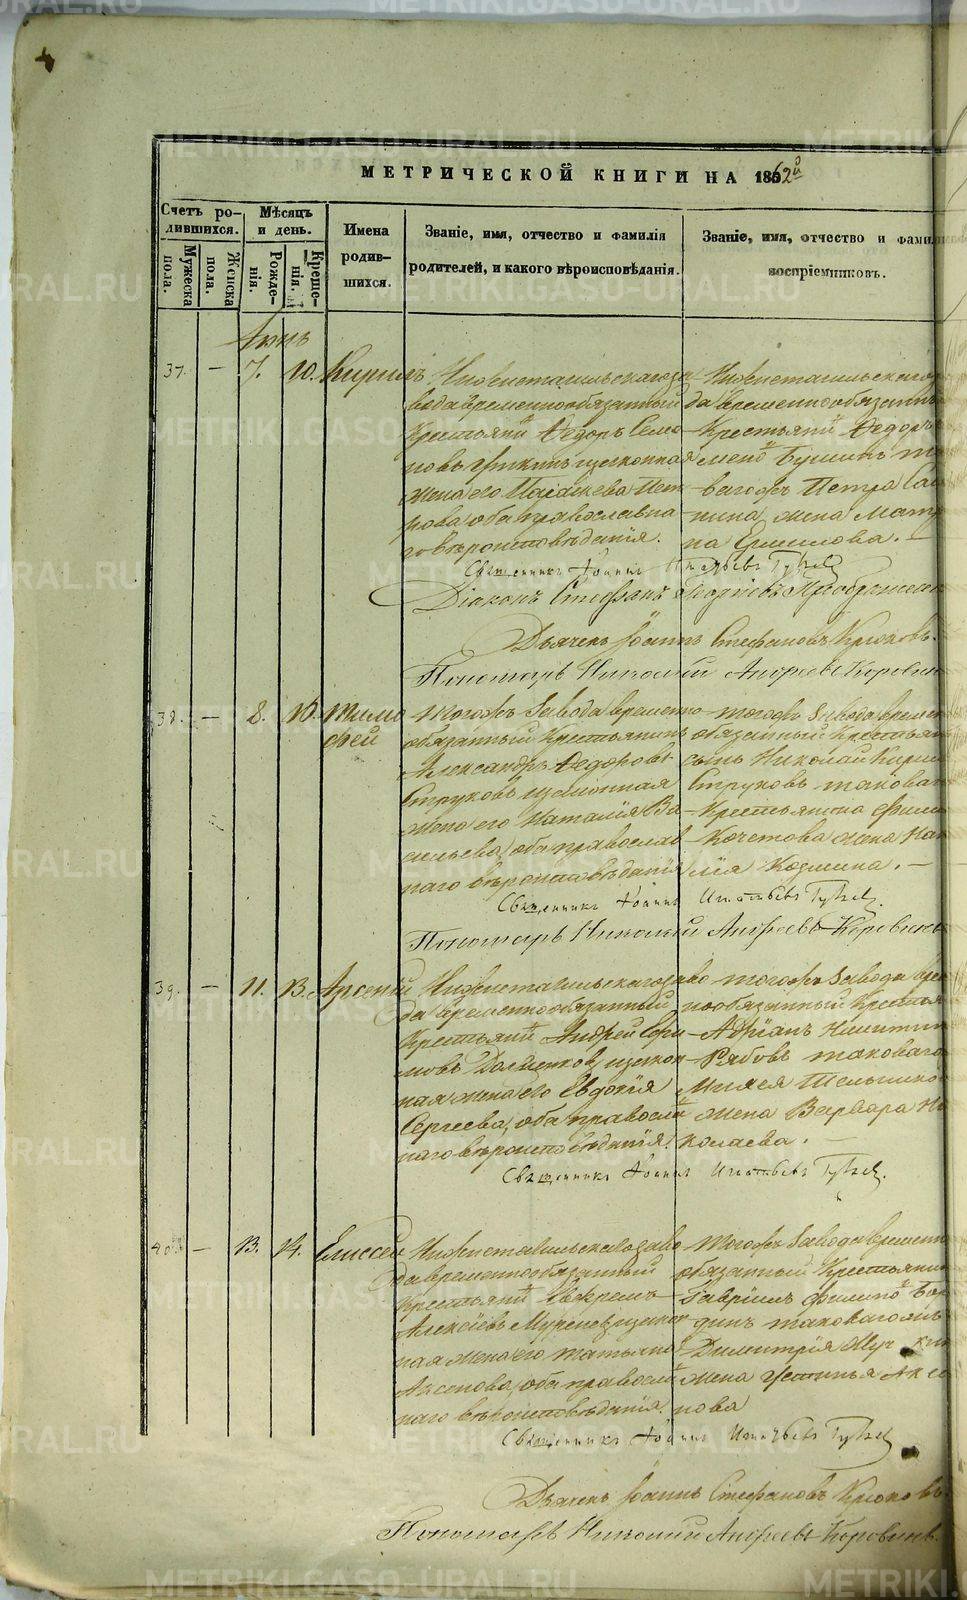 МЕТРИЧЕСКОЙ КНИГИ НА 1862й
Счетъ родившихся.
Мужеска пола.
Женска пола.
Мѣсяцъ и день.
Рожденія.
Крещенія.
Имена родившихся.
Званіе, имя, отчество и фамилія родителей, и какого вѣроисповѣданія.
Званіе, имя, отчество и фами
воспріемниковъ.
37. — 7. 10. Кирилъ
Нижнетагильскаго за
вода временнообязанный
Крестьянин Федоръ Семе
новъ законная
жена его Пет
рова, оба православна
го вѣроисповѣданія.
Нижнетагильскаго
да временнообязанн
Крестьянин Федоръ
мено
вагожъ Петра
нина жена Матр
на Ермилова. —
Священникъ Іоаннъ Игнатьевъ
Діаконъ Стефанъ
Дьячекъ Іоаннъ Стефановъ Крюковъ.
Пономарь Николай Андреевъ Коровинъ
38. — 8. 10. Тимо
фей
Тогожъ Завода временно
обязанный Крестьянинъ
Александръ Федоровъ
Струковъ законная
жена его Наталія Ва
сильева, оба православ
наго вѣроисповѣданія
тогожъ Завода времен
обязанный Крестьян
сынъ Николай Кирил
Струковъ таковаг
Крестьянина Фили
Кочетова жена На
лія Козмина. —
Священникъ Іоаннъ Игнатьевъ
Пономарь Николай Андреевъ Коровинъ
39. — 11. 13. Арсеній
Нижнетагильскаго заво
да временнообязанный
Крестьянин Андрей
мовъ закон
ная жена его Евдокія
Сергеева, оба правосл
наго вѣроисповѣданія.
тогожъ Завода вре
нообязанный Кресть
Адріанъ Никитин
Рябовъ таковаго
жена Варвара Ни
колаева. —
Священникъ Іоаннъ Игнатьевъ
40 — 13. 14. Елиссей
Нижнетагильскаго заво
да временнообязанный
Крестьянин
Алексіевъ закон
ная жена его Татьяна
Аксенова, оба правосл
наго вѣроисповѣданія.
Тогожъ Завода временн
обязанный Крестьянин
Гавріилъ Филипо
динъ таковагожъ
Димитрія
жена Устинья Аксе
нова
Священникъ Іоаннъ Игнатьевъ
Дьячекъ Іоаннъ Стефановъ Крюковъ.
Пономарь Николай Андреевъ Коровинъ.
METRIKI.GASO-URAL.RU